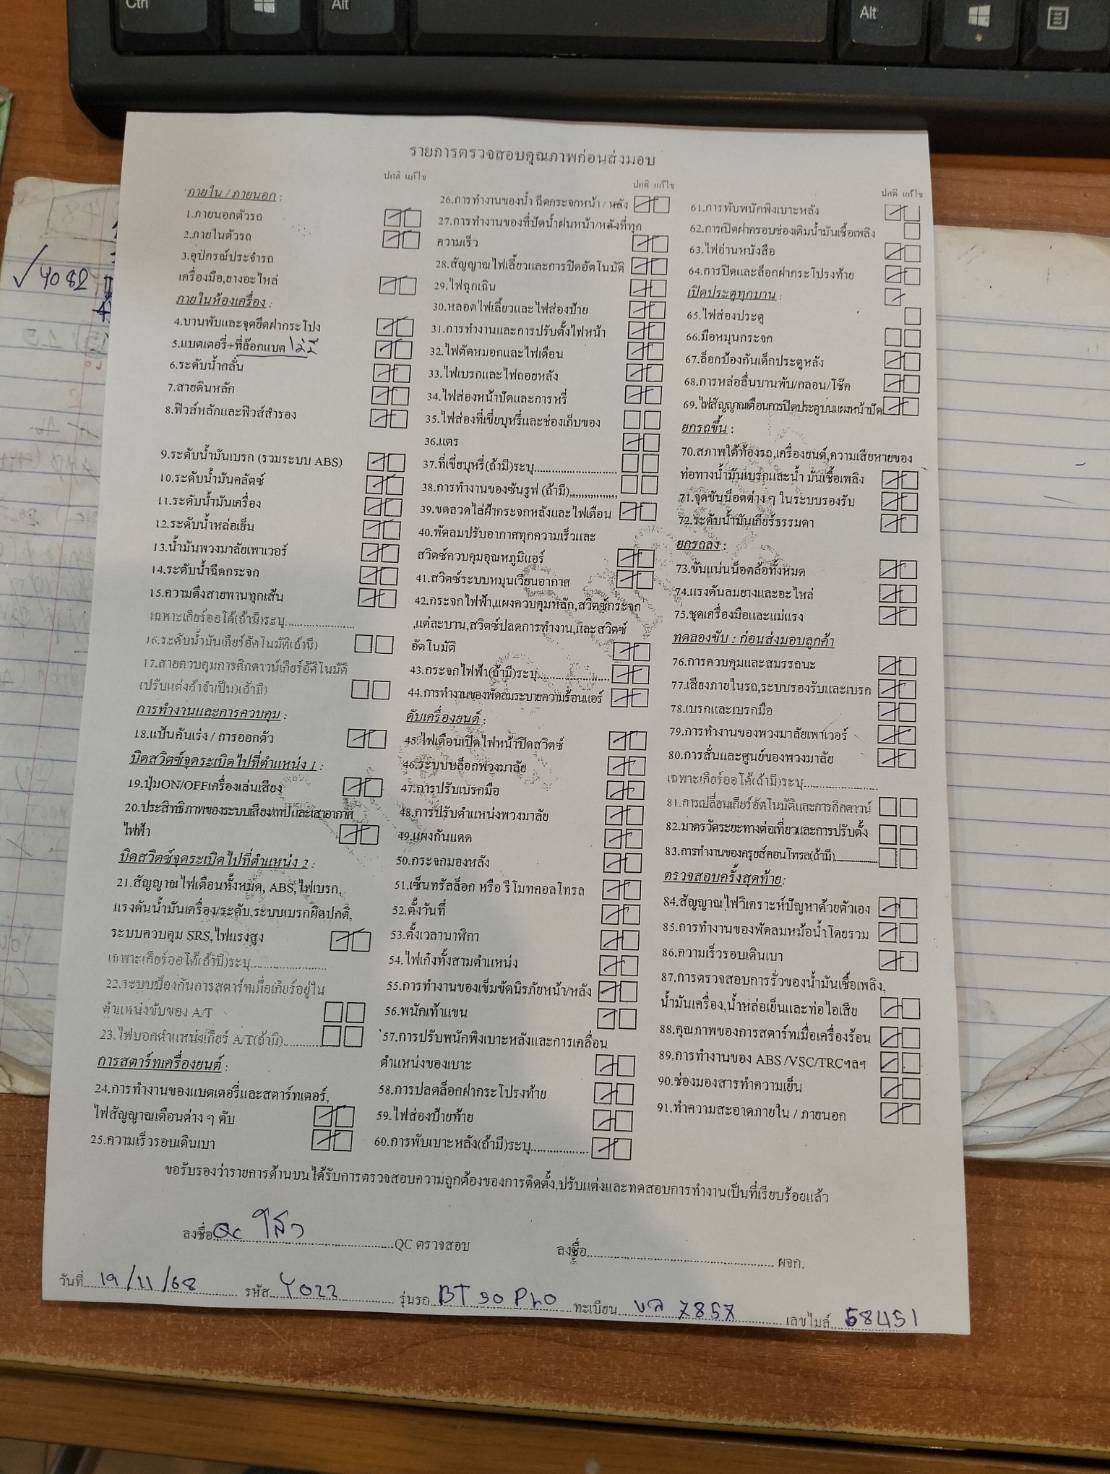 Ctrl
Alt
Alt
รายการตรวจสอบคุณภาพก่อนส่งมอบ
ปกติ แก้ไข
ภายใน / ภายนอก :
1.ภายนอกตัวรถ
2.ภายในตัวรถ
3.อุปกรณ์ประจำรถ
เครื่องมือ,ยางอะไหล่
ภายในห้องเครื่อง :
4.บานพับและจุดยึดฝากระโปรง
5.แบตเตอรี่+ที่ล็อกแบต ไม่มี
6.ระดับน้ำกลั่น
7.สายดินหลัก
8.ฟิวส์หลักและฟิวส์สำรอง
9.ระดับน้ำมันเบรก (รวมระบบ ABS)
10.ระดับน้ำมันคลัตช์
11.ระดับน้ำมันเครื่อง
12.ระดับน้ำหล่อเย็น
13.น้ำมันพวงมาลัยเพาเวอร์
14.ระดับน้ำฉีดกระจก
15.ความตึงสายพานทุกเส้น
เฉพาะเกียร์ออโต้(ถ้ามี)ระบุ
16.ระดับน้ำมันเกียร์อัตโนมัติ(ถ้ามี)
17.สายควบคุมการคิกดาวน์เกียร์อัติโนมัติ
(ปรับแต่งถ้าจำเป็น)(ถ้ามี)
การทำงานและการควบคุม :
18.แป้นคันเร่ง / การออกตัว
บิดสวิตซ์จุดระเบิดไปที่ตำแหน่ง 1 :
19.ปุ่มON/OFFเครื่องเล่นเสียง
20.ประสิทธิภาพของระบบเสียงเทปและเสาอากาศ
ไฟฟ้า
บิดสวิตซ์จุดระเบิดไปที่ตำแหน่ง 2 :
21.สัญญาณไฟเตือนทั้งหมด, ABS,ไฟเบรก,
แรงดันน้ำมันเครื่อง/ระดับ,ระบบเบรกผิดปกติ,
ระบบควบคุม SRS,ไฟแรงสูง
เฉพาะเกียร์ออโต้(ถ้ามี)ระบุ
22.ระบบป้องกันการสตาร์ทเมื่อเกียร์อยู่ใน
ตำแหน่งขับของ A/T
23.ไฟบอกตำแหน่งเกียร์ A/T(ถ้ามี)
การสตาร์ทเครื่องยนต์ :
24.การทำงานของแบตเตอรี่และสตาร์ทเตอร์,
ไฟสัญญาณเตือนต่าง ๆ ดับ
25.ความเร็วรอบเดินเบา
ปกติ แก้ไข
26.การทำงานของน้ำ ฉีดกระจกหน้า / หลัง
27.การทำงานของที่ปัดน้ำฝนหน้า/หลังที่ทุก
ความเร็ว
28.สัญญาณไฟเลี้ยวและการปิดอัตโนมัติ
29.ไฟฉุกเฉิน
30.หลอดไฟเลี้ยวและไฟส่องป้าย
31.การทำงานและการปรับตั้งไฟหน้า
32.ไฟตัดหมอกและไฟเตือน
33.ไฟเบรกและไฟถอยหลัง
34.ไฟส่องหน้าปัดและการหรี่
35.ไฟส่องที่เขี่ยบุหรี่และช่องเก็บของ
36.แตร
37.ที่เขี่ยบุหรี่(ถ้ามี)ระบุ
38.การทำงานของซันรูฟ (ถ้ามี)
39.ขดลวดไล่ฝ้ากระจกหลังและไฟเตือน
40.พัดลมปรับอากาศทุกความเร็วและ
สวิตซ์ควบคุมอุณหภูมิแอร์
41.สวิตซ์ระบบหมุนเวียนอากาศ
42.กระจกไฟฟ้า,แผงควบคุมหลัก,สวิตซ์กระจก
,แต่ละบาน,สวิตซ์ปลดการทำงาน,และสวิตซ์
อัตโนมัติ
43.กระจกไฟฟ้า(ถ้ามี)ระบุ
44.การทำงานของพัดลมระบายความร้อนแอร์
ดับเครื่องยนต์ :
45.ไฟเตือนเปิดไฟหน้าปิดสวิตซ์
46.ระบบบล็อกพวงมาลัย
47.การปรับเบรกมือ
48.การปรับตำแหน่งพวงมาลัย
49.แผงกันแดด
50.กระจกมองหลัง
51.เซ็นทรัลล็อก หรือ รีโมทคอลโทรล
52.ตั้งวันที่
53.ตั้งเวลานาฬิกา
54.ไฟเก๋งทั้งสามตำแหน่ง
55.การทำงานของเข็มขัดนิรภัยหน้า/หลัง
56.พนักเท้าแขน
57.การปรับพนักพิงเบาะหลังและการเคลื่อน
ตำแหน่งของเบาะ
58.การปลดล็อกฝากระโปรงท้าย
59.ไฟส่องป้ายท้าย
60.การพับเบาะหลัง(ถ้ามี)ระบุ
ปกติ แก้ไข
61.การพับพนักพิงเบาะหลัง
62.การเปิดฝาครอบช่องเติมน้ำมันเชื้อเพลิง
63.ไฟอ่านหนังสือ
64.การปิดและล็อกฝากระโปรงท้าย
เปิดประตูทุกบาน :
65.ไฟส่องประตู
66.มือหมุนกระจก
67.ล็อกป้องกันเด็กประตูหลัง
68.การหล่อลื่นบานพับ/กลอน/โช๊ค
69.ไฟสัญญาณเตือนการปิดประตูบนแผงหน้าปัด
ยกรถขึ้น :
70.สภาพใต้ท้องรถ,เครื่องยนต์,ความเสียหายของ
ท่อทางน้ำมันเบรกและน้ำ มันเชื้อเพลิง
71.จุดขันน็อตต่าง ๆ ในระบบรองรับ
72.ระดับน้ำมันเกียร์ธรรมดา
ยกรถลง :
73.ขันแน่นน็อตล้อทั้งหมด
74.แรงดันลมยางและอะไหล่
75.ชุดเครื่องมือและแม่แรง
ทดลองขับ : ก่อนส่งมอบลูกค้า
76.การควบคุมและสมรรถนะ
77.เสียงภายในรถ,ระบบรองรับและเบรก
78.เบรกและเบรกมือ
79.การทำงานของพวงมาลัยเพาเวอร์
80.การสั่นและศูนย์ของพวงมาลัย
เฉพาะเกียร์ออโต้(ถ้ามี)ระบุ
81.การเปลี่ยนเกียร์อัตโนมัติและการคิกดาวน์
82.มาตรวัดระยะทางต่อเที่ยวและการปรับตั้ง
83.การทำงานของครูซส์คอนโทรล(ถ้ามี)
ตรวจสอบครั้งสุดท้าย:
84.สัญญาณไฟวิเคราะห์ปัญหาด้วยตัวเอง
85.การทำงานของพัดลมหม้อน้ำโดยรวม
86.ความเร็วรอบเดินเบา
87.การตรวจสอบการรั่วของน้ำมันเชื้อเพลิง,
น้ำมันเครื่อง,น้ำหล่อเย็นและท่อไอเสีย
88.คุณภาพของการสตาร์ทเมื่อเครื่องร้อน
89.การทำงานของ ABS /VSC/TRCฯลฯ
90.ช่องมองสารทำความเย็น
91.ทำความสะอาดภายใน / ภายนอก
ขอรับรองว่ารายการด้านบน ได้รับการตรวจสอบความถูกต้องของการติดตั้ง,ปรับแต่งและทดสอบการทำงานเป็นที่เรียบร้อยแล้ว
ลงชื่อ QC QC ตรวจสอบ
ลงชื่อ ผจก.
วันที่ 19/11/68 รหัส Y022 รุ่นรถ BT50 Pro ทะเบียน บล 7857 เลขไมล์ 58451
4082